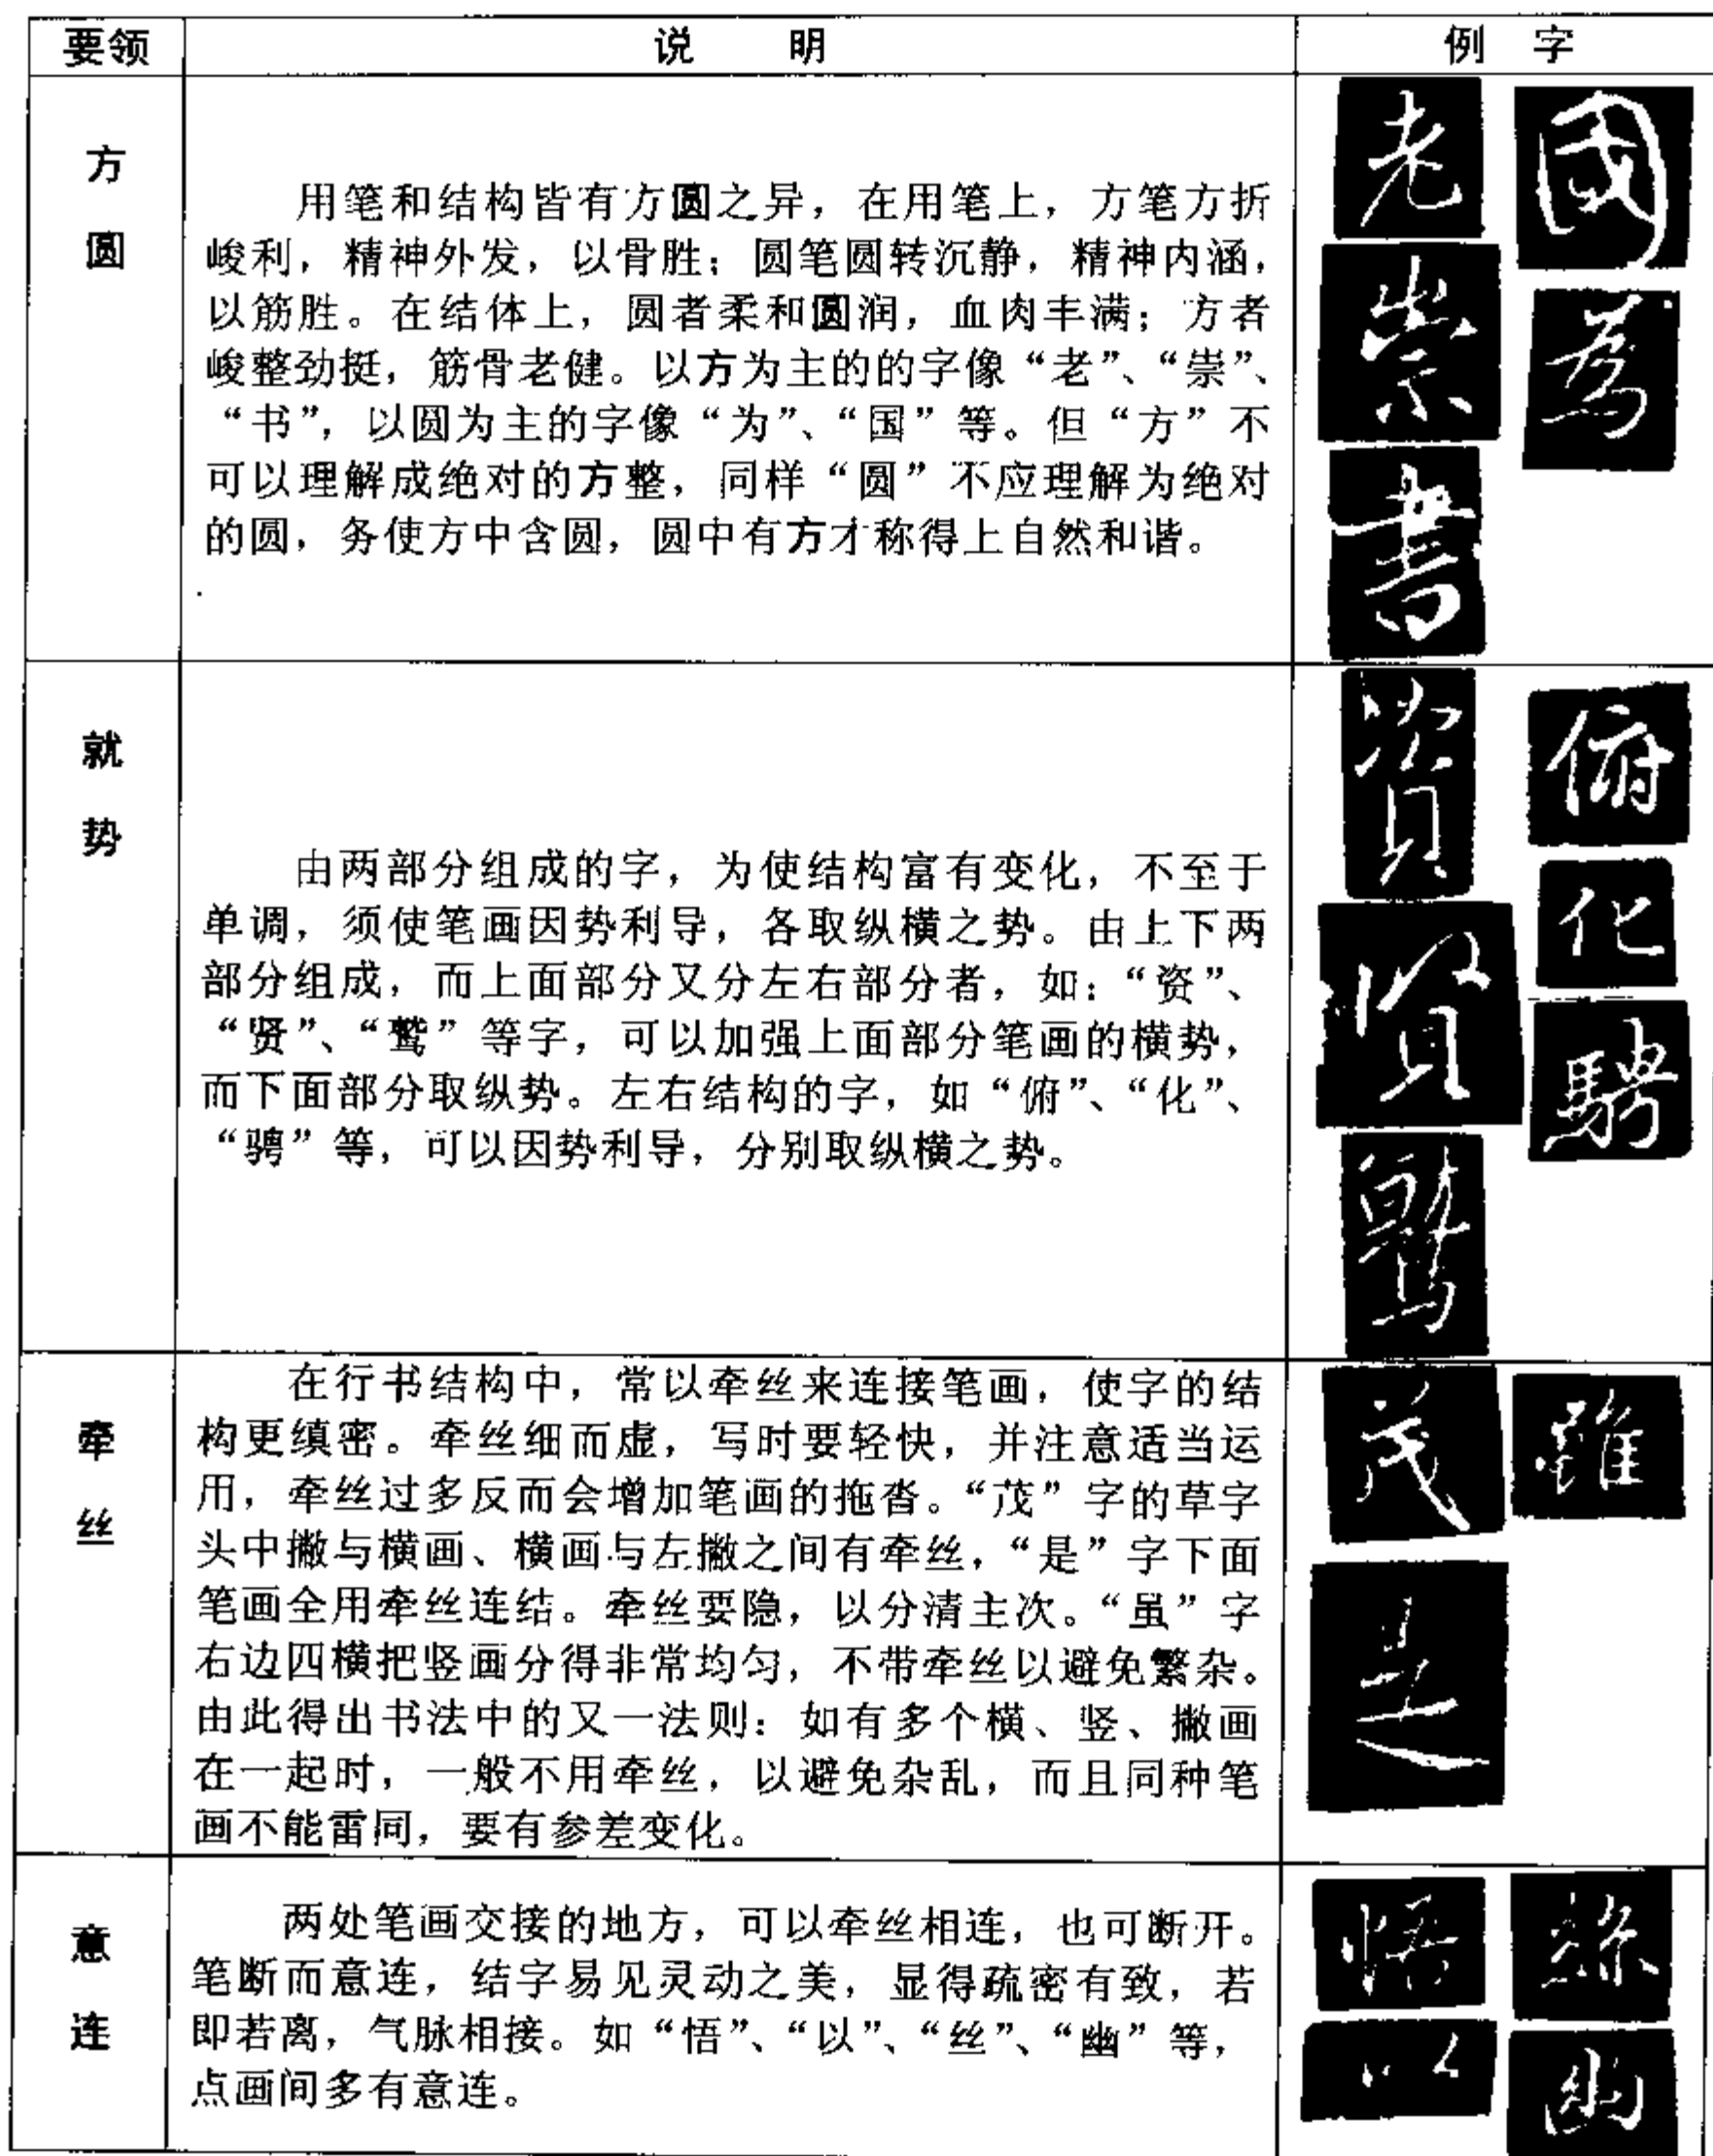 要领 说 明 例 字
方圆
用笔和结构皆有方圆之异，在用笔上，方笔方折
峻利，精神外发，以骨胜；圆笔圆转沉静，精神内涵，
以筋胜。在结体上，圆者柔和圆润，血肉丰满；方者
峻整劲挺，筋骨老健。以方为主的的字像“老”、“崇”、
“书”，以圆为主的字像“为”、“国”等。但“方”不
可以理解成绝对的方整，同样“圆”不应理解为绝对
的圆，务使方中含圆，圆中有方才称得上自然和谐。
老 國
崇 為
書
就势
由两部分组成的字，为使结构富有变化，不至于
单调，须使笔画因势利导，各取纵横之势。由上下两
部分组成，而上面部分又分左右部分者，如：“资”、
“贤”、“鹫”等字，可以加强上面部分笔画的横势，
而下面部分取纵势。左右结构的字，如“俯”、“化”、
“骋”等，可以因势利导，分别取纵横之势。
資 俯
化
賢 騁
鷲
牵丝
在行书结构中，常以牵丝来连接笔画，使字的结
构更缜密。牵丝细而虚，写时要轻快，并注意适当运
用，牵丝过多反而会增加笔画的拖沓。“茂”字的草字
头中撇与横画、横画与左撇之间有牵丝，“是”字下面
笔画全用牵丝连结。牵丝要隐，以分清主次。“虽”字
右边四横把竖画分得非常均匀，不带牵丝以避免繁杂。
由此得出书法中的又一法则：如有多个横、竖、撇画
在一起时，一般不用牵丝，以避免杂乱，而且同种笔
画不能雷同，要有参差变化。
茂 雖
是
意连
两处笔画交接的地方，可以牵丝相连，也可断开。
笔断而意连，结字易见灵动之美，显得疏密有致，若
即若离，气脉相接。如“悟”、“以”、“丝”、“幽”等，
点画间多有意连。
悟 絲
以 幽